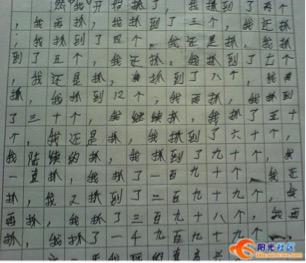 然我开始抓了，我抓到了两个
，我再抓，我抓到了三个，我还抓
，我抓到了五个，我还是抓，我抓
到了五个，我还抓，我抓到了六个
，我还是抓，我抓到了八个，我再
抓，我抓到12个，我再抓，我抓到
了三十个，我继续抓，我抓了五十
个，我还是抓，我抓到了六十个，
我陆续的抓，我抓到了九十个，我
一直抓，我抓了一百九十个，我还
抓，我又抓到了三百九十九个，我
再抓，我抓了三百九十八个，我再
抓，我抓了一千九百九十九个，
阳光社区